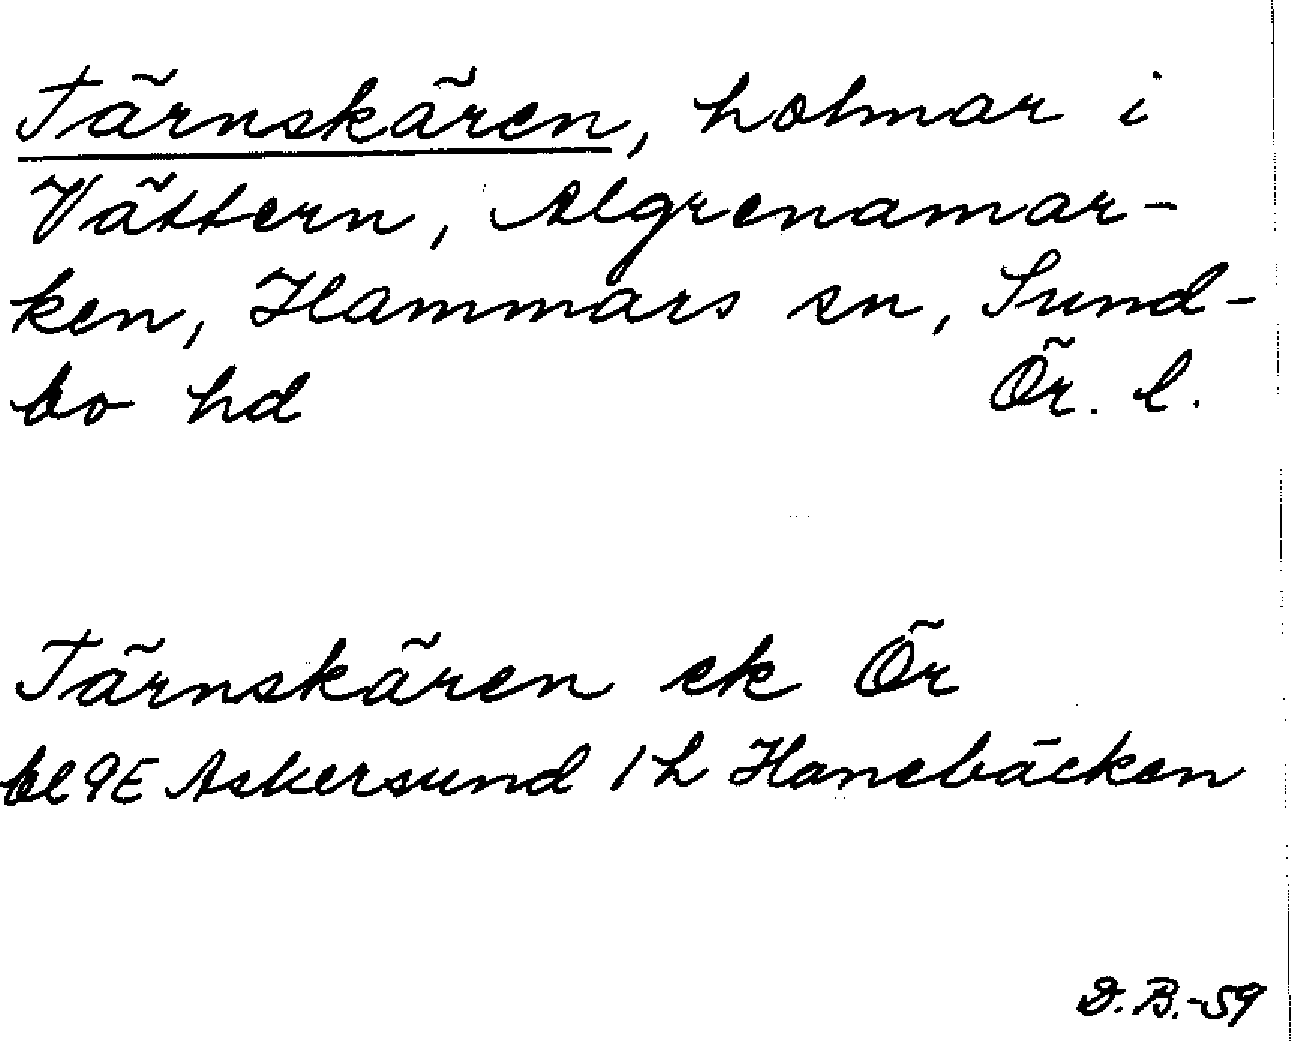 Tärnskären, holmar i
Vättern, Algrenamar-
ken, Hammars sn, Sund-
bo hd Ör. l.
Tärnskären ek Ör
bl 9E Askersund 1 h Hanebäcken
D.B.-59